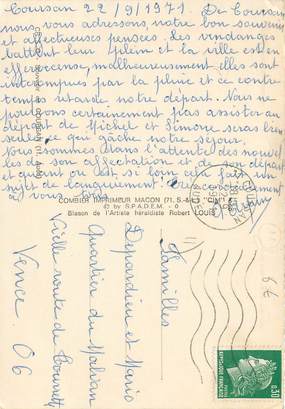 Coursan 22/9/1971. De Coursan
nous vous adressons notre bon souvenir
et affectueuses pensées. Les vendanges
battent leur plein et la ville est en
effervescense, malheureusement elles sont
interrompues par la pluie et ce contre
temps retarde notre départ. Nous ne
pouvons certainement pas assister au
départ de Michel et Simone sera bien
seule. Nous sommes dans l'attente des nouvel
les de son affectation et de son départ
et quant
sujet de
à vous tous
COMBIER IMPRIMEUR MACON (71. S.-&-L.) "CIM"
© by S.P.A.D.E.M.
Blason de l'Artiste héraldiste Robert LOUIS
Familles
Depardieu et Mario
Quartier du Malvan
Vieille route de Tourrette
Vence 06
COURSAN
AUDE
6€
REPUBLIQUE FRANÇAISE
0,30